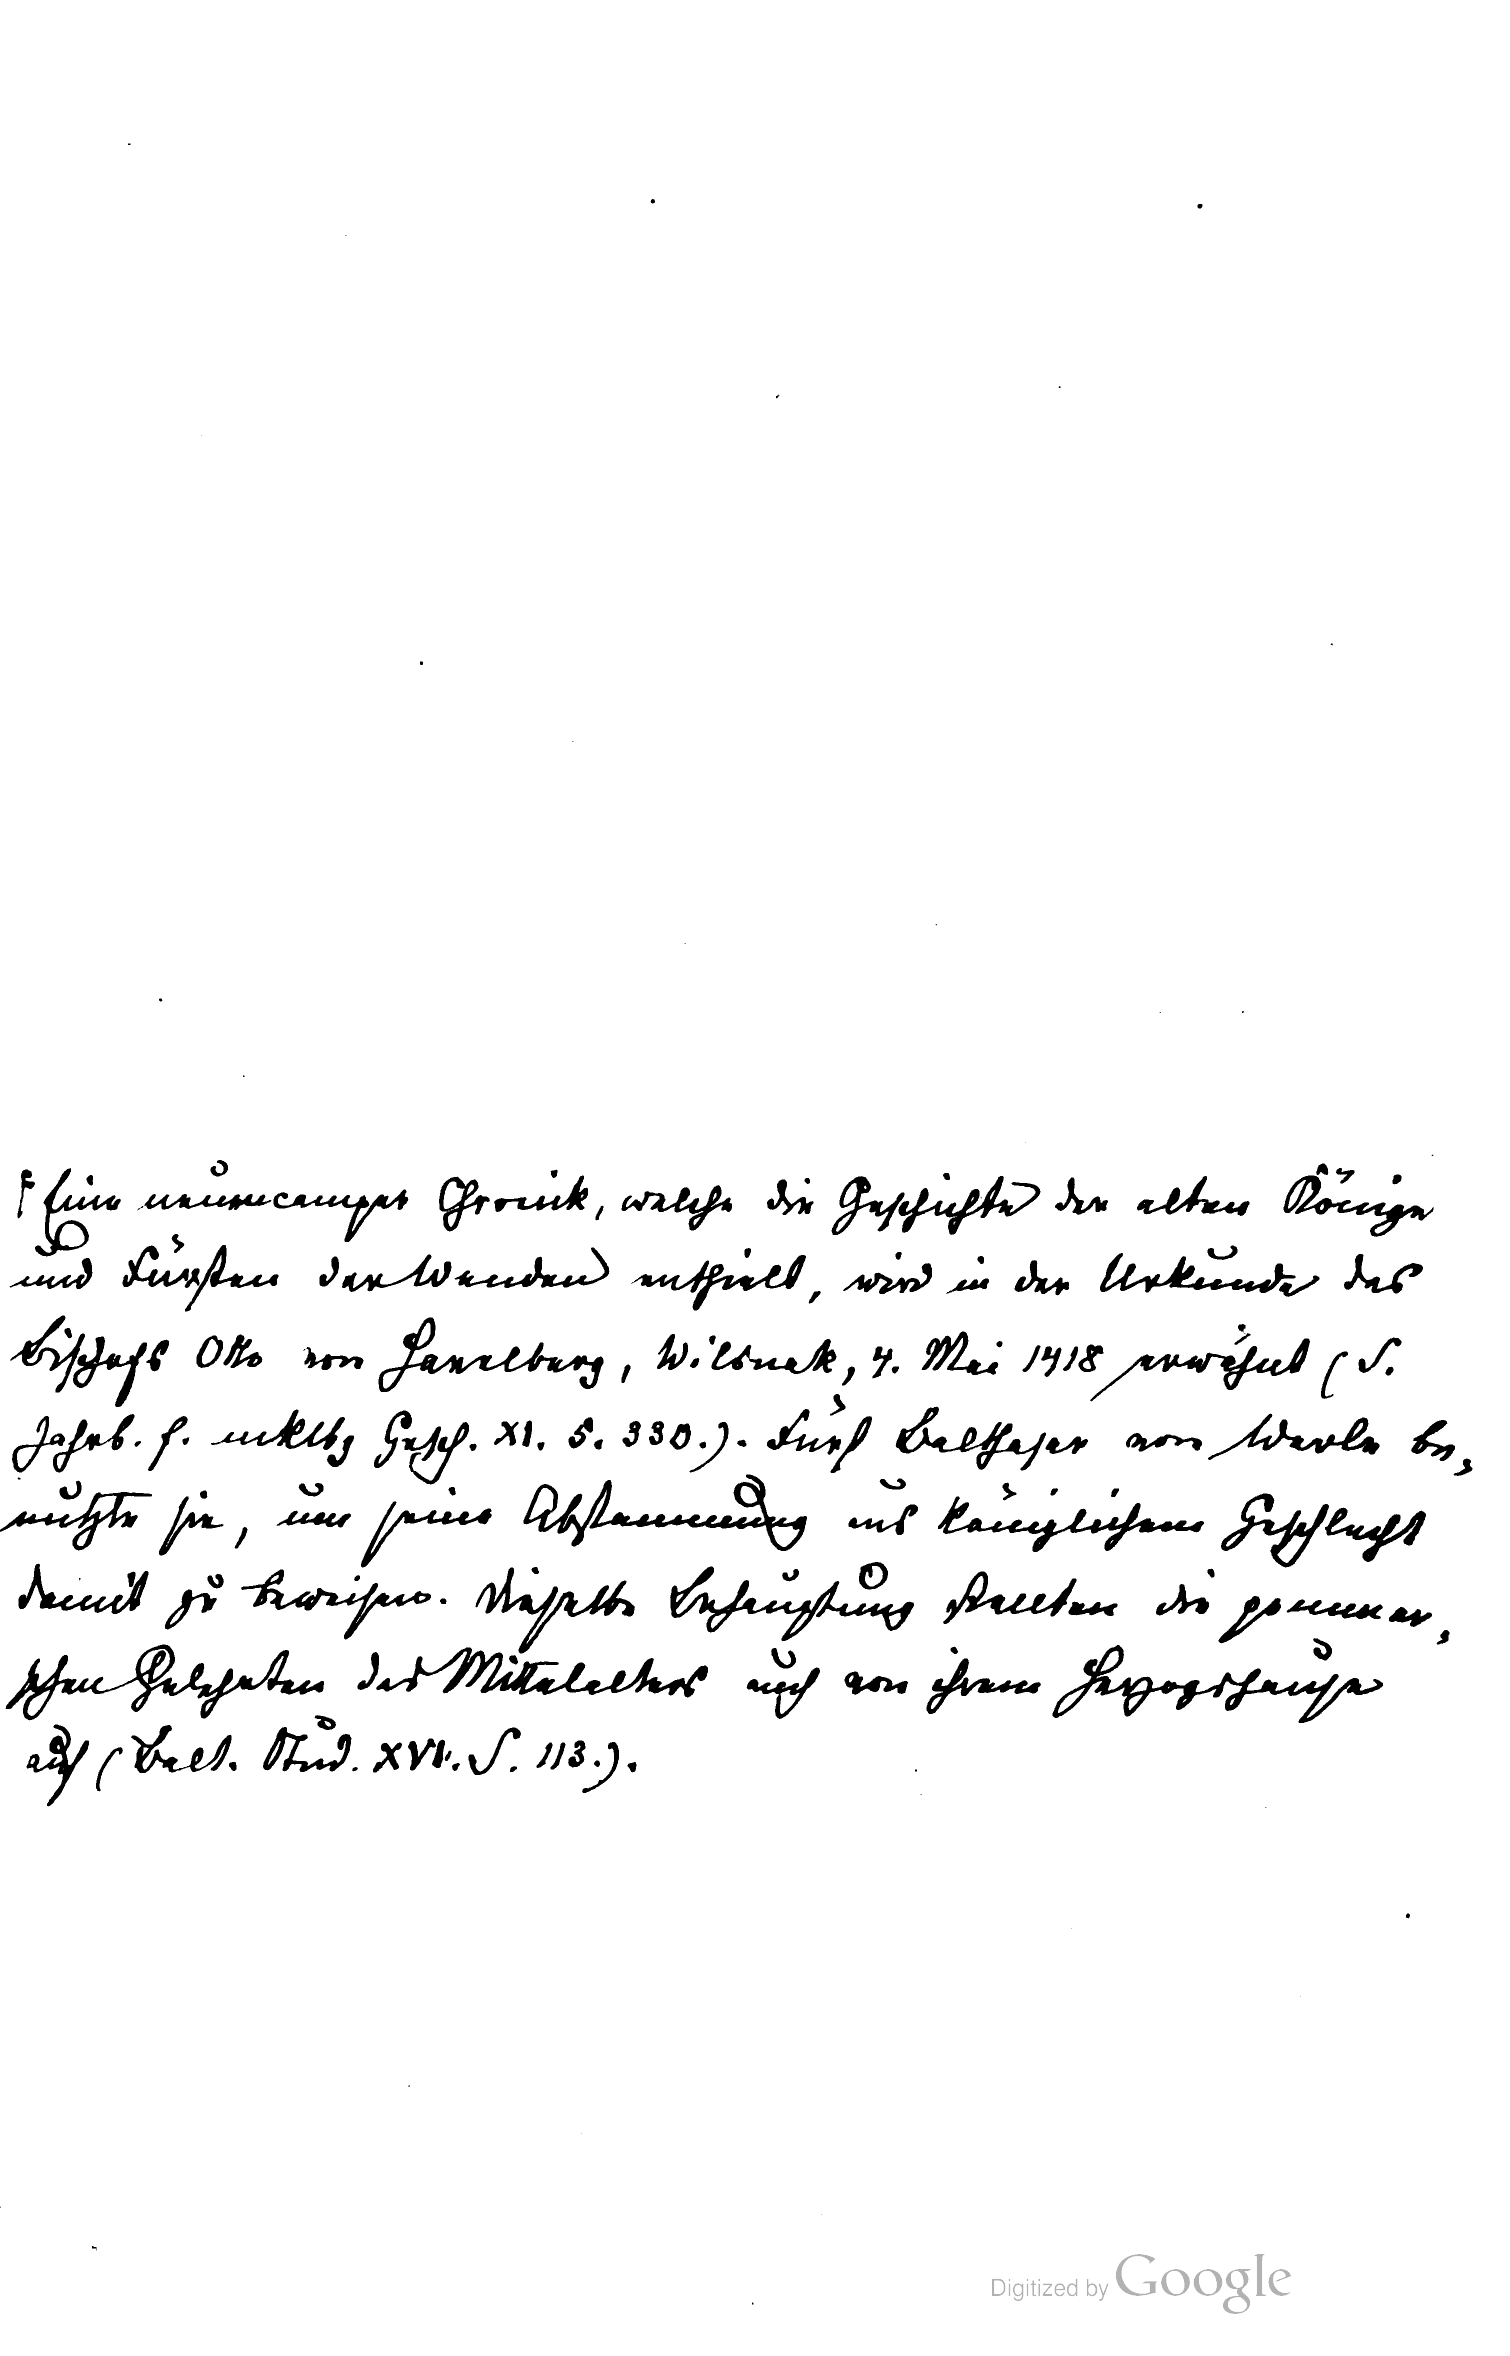 † Eine neuencamper Chronik, welche die Geschichte der alten Könige
und Fürsten der Wenden enthielt, wird in der Urkunde des
Bischofs Otto von Havelberg, Wilsnak, 4. Mai 1418 erwähnt (S.
Jahrb. f. mklbg Gesch. XI. S. 330.). Fürst Balthasar von Werle be-
nutzte sie, um seine Abstammung aus königlichem Geschlecht
damit zu beweisen. Dieselbe Behauptung stellten die pommer-
schen Gelehrten des Mittelalters auch von ihrem Herzogshause
auf (Balt. Stud. XVI. S. 113.).
Digitized by Google